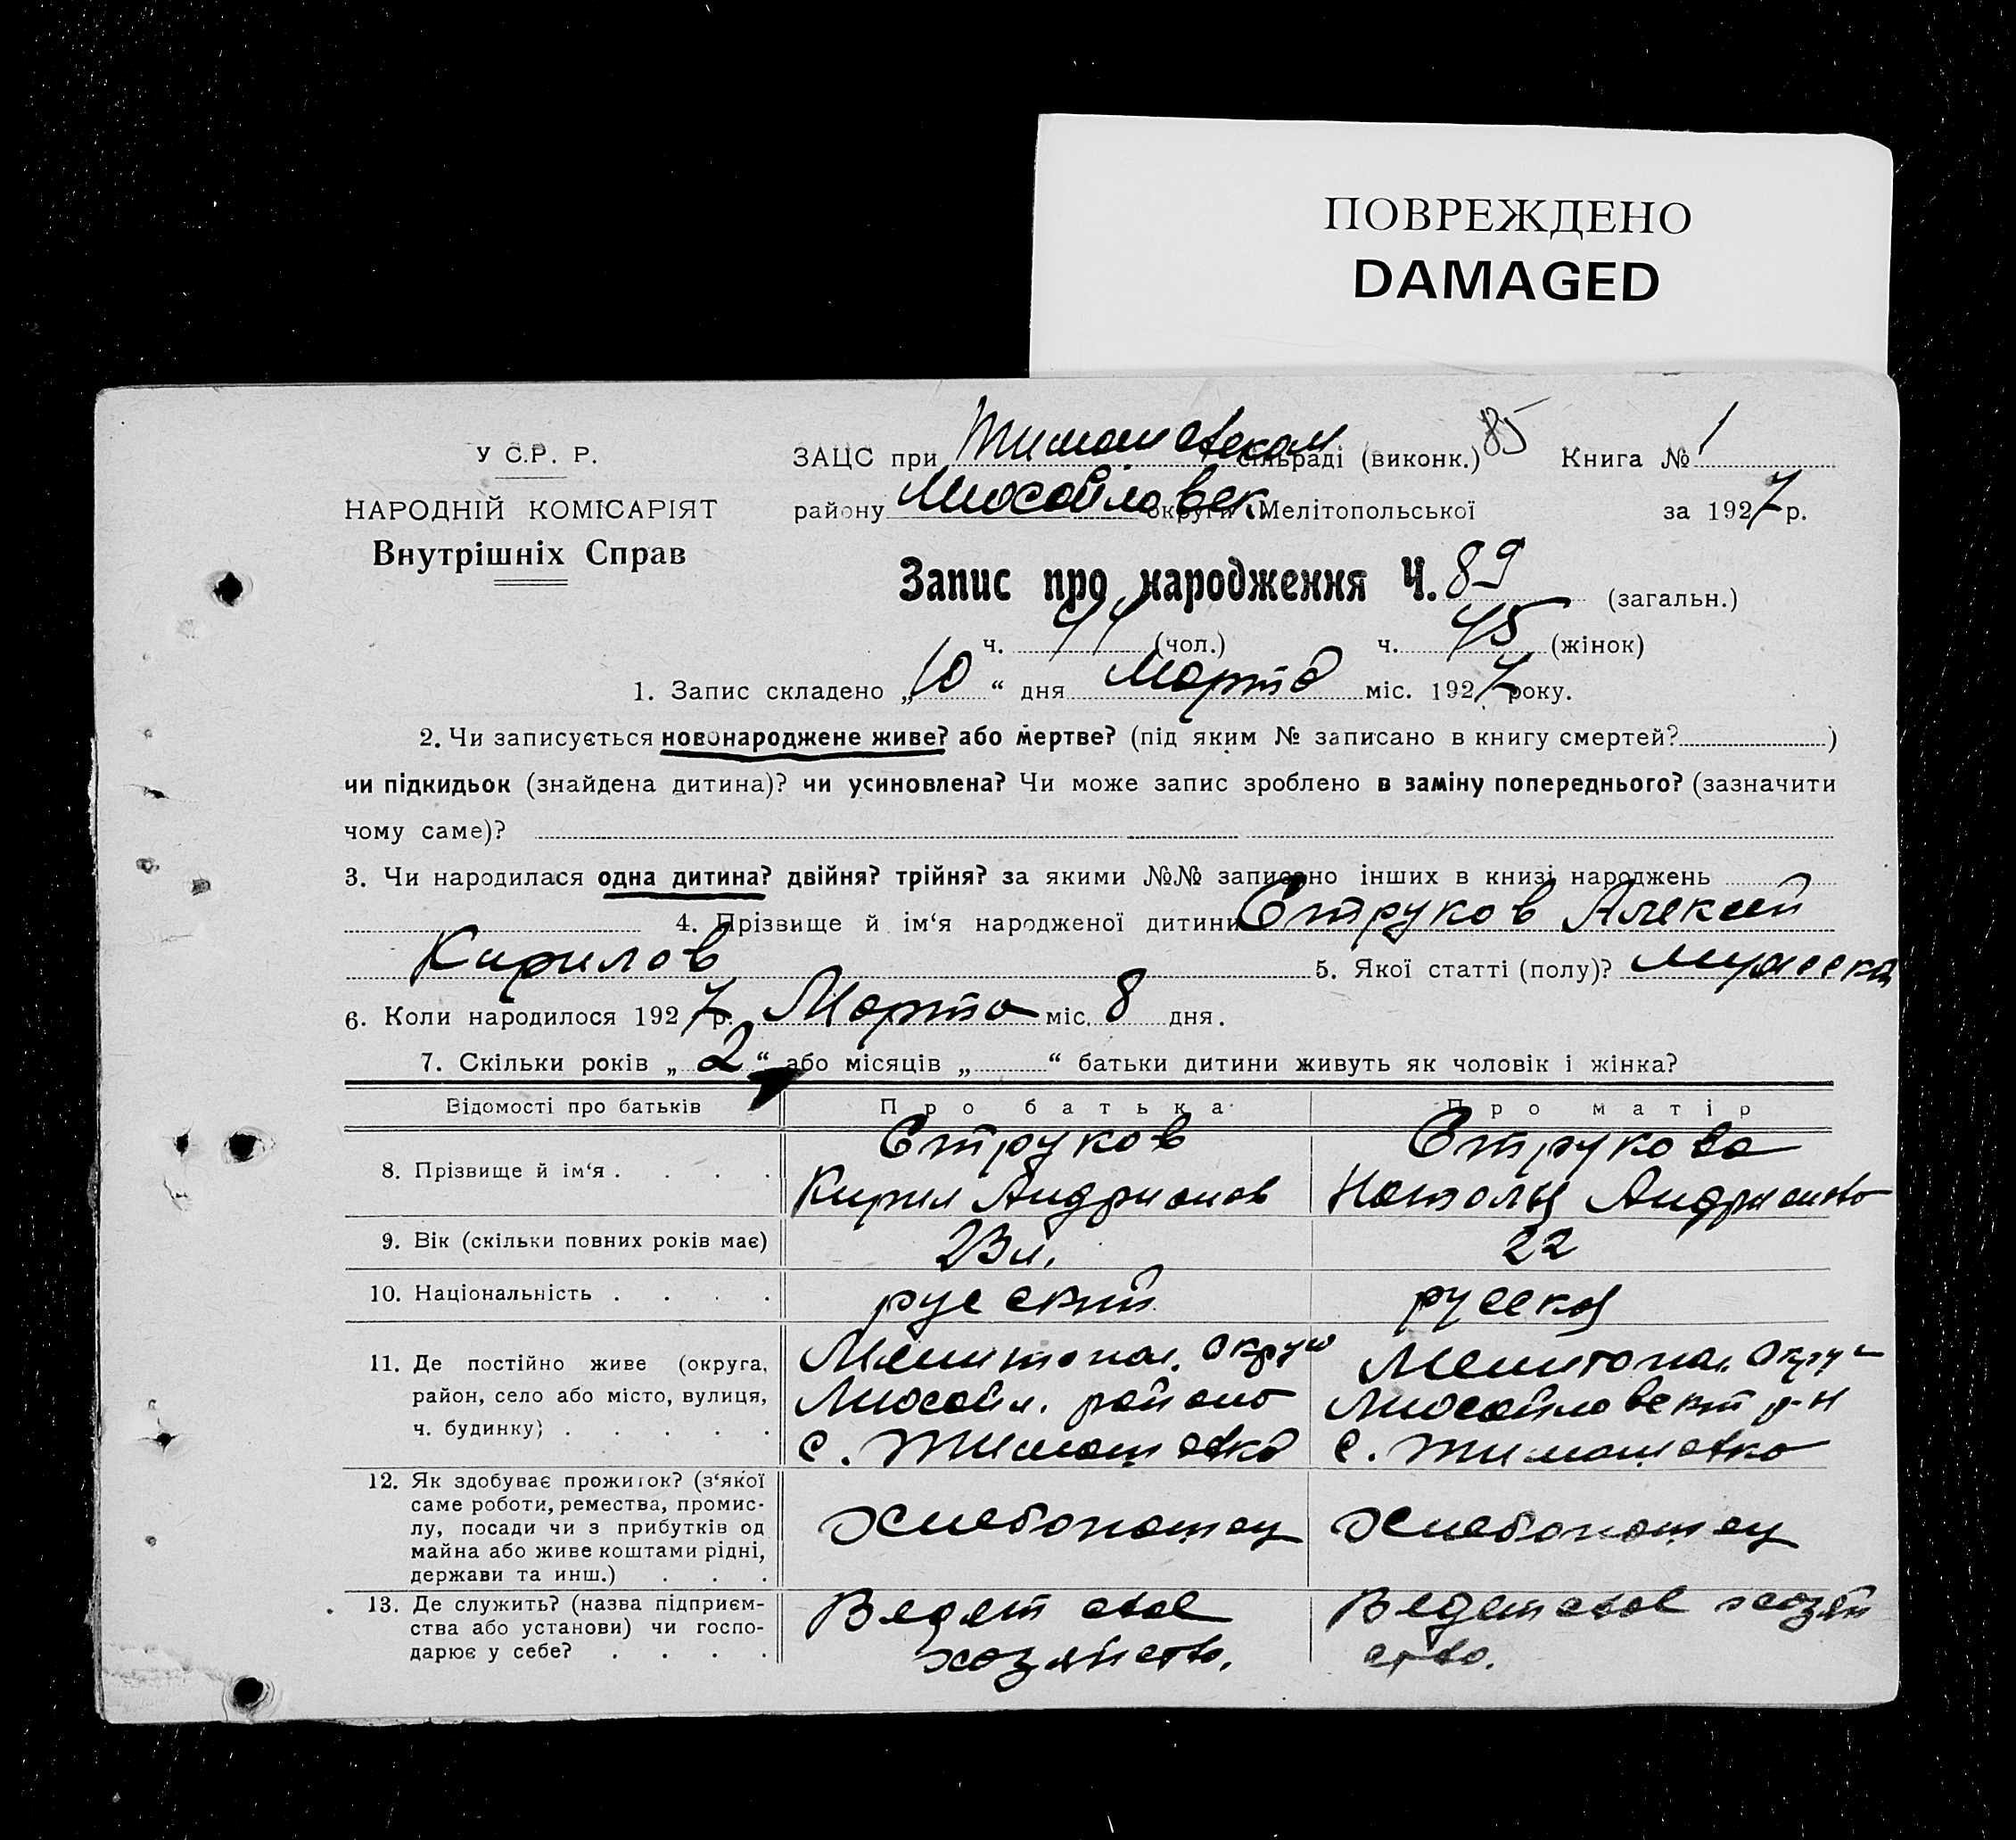 ПОВРЕЖДЕНО
DAMAGED
У С.Р. Р.
НАРОДНІЙ КОМІСАРІЯТ
Внутрішніх Справ
ЗАЦС при Тимошевском сільраді (виконк.) 85 Книга № 1
району Михайловск. округи Мелітопольської за 1927 р.
Запис про народження Ч. 89 (загальн.)
ч. 44 (чол.) ч. 45 (жінок)
1. Запис складено „10“ дня Марта міс. 1927 року.
2. Чи записується новонароджене живе? або мертве? (під яким № записано в книгу смертей? )
чи підкидьок (знайдена дитина)? чи усиновлена? Чи може запис зроблено в заміну попереднього? (зазначити
чому саме)?
3. Чи народилася одна дитина? двійня? трійня? за якими №№ записано інших в книзі народжень
4. Прізвище й ім‘я народженої дитини Струков Алексей
Кирилов 5. Якої статті (полу)? мужеска
6. Коли народилося 1927 р. Марта міс. 8 дня.
7. Скільки років „2“ або місяців „ “ батьки дитини живуть як чоловік і жінка?
Відомості про батьків Про батька Про матір
8. Прізвище й ім‘я . . . . Струков Кирил Андрианов Струкова Натолья Андрианово
9. Вік (скільки повних років має) 23 л. 22
10. Національність . . . . русский русская
11. Де постійно живе (округа, Мелитопол. округ Мелитопол. округ
район, село або місто, вулиця, Михайл. район Михайловский р-н
ч. будинку) . . . . . с. Тимошевка с. Тимошевка
12. Як здобуває прожиток? (з‘якої
саме роботи, ремества, промис-
лу, посади чи з прибутків од Хлебопашец Хлебопашец
майна або живе коштами рідні,
держави та инш.) . . .
13. Де служить? (назва підприєм- Ведет свое Ведет свое хозяй
ства або установи) чи госпо-
дарює у себе? . . . . хозяйство. ство.